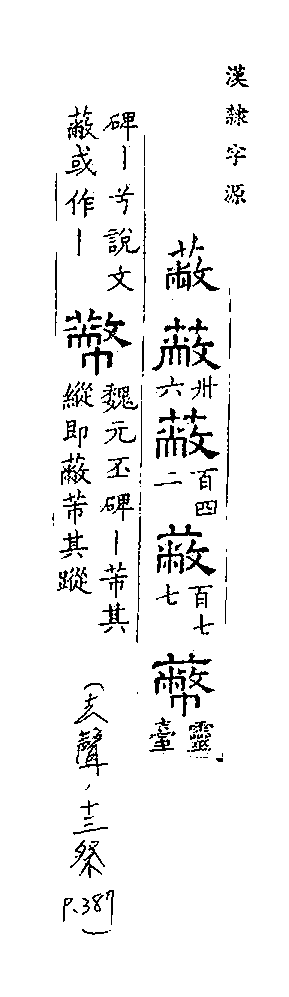 漢隸字源
蔽 蔽 卅六 蔽 百四二 蔽 百七七 幣 靈臺
碑丨考說文蔽或作丨 幣 魏元丕碑丨芾其縱即蔽芾其蹤
(去聲,十三祭 P.387)